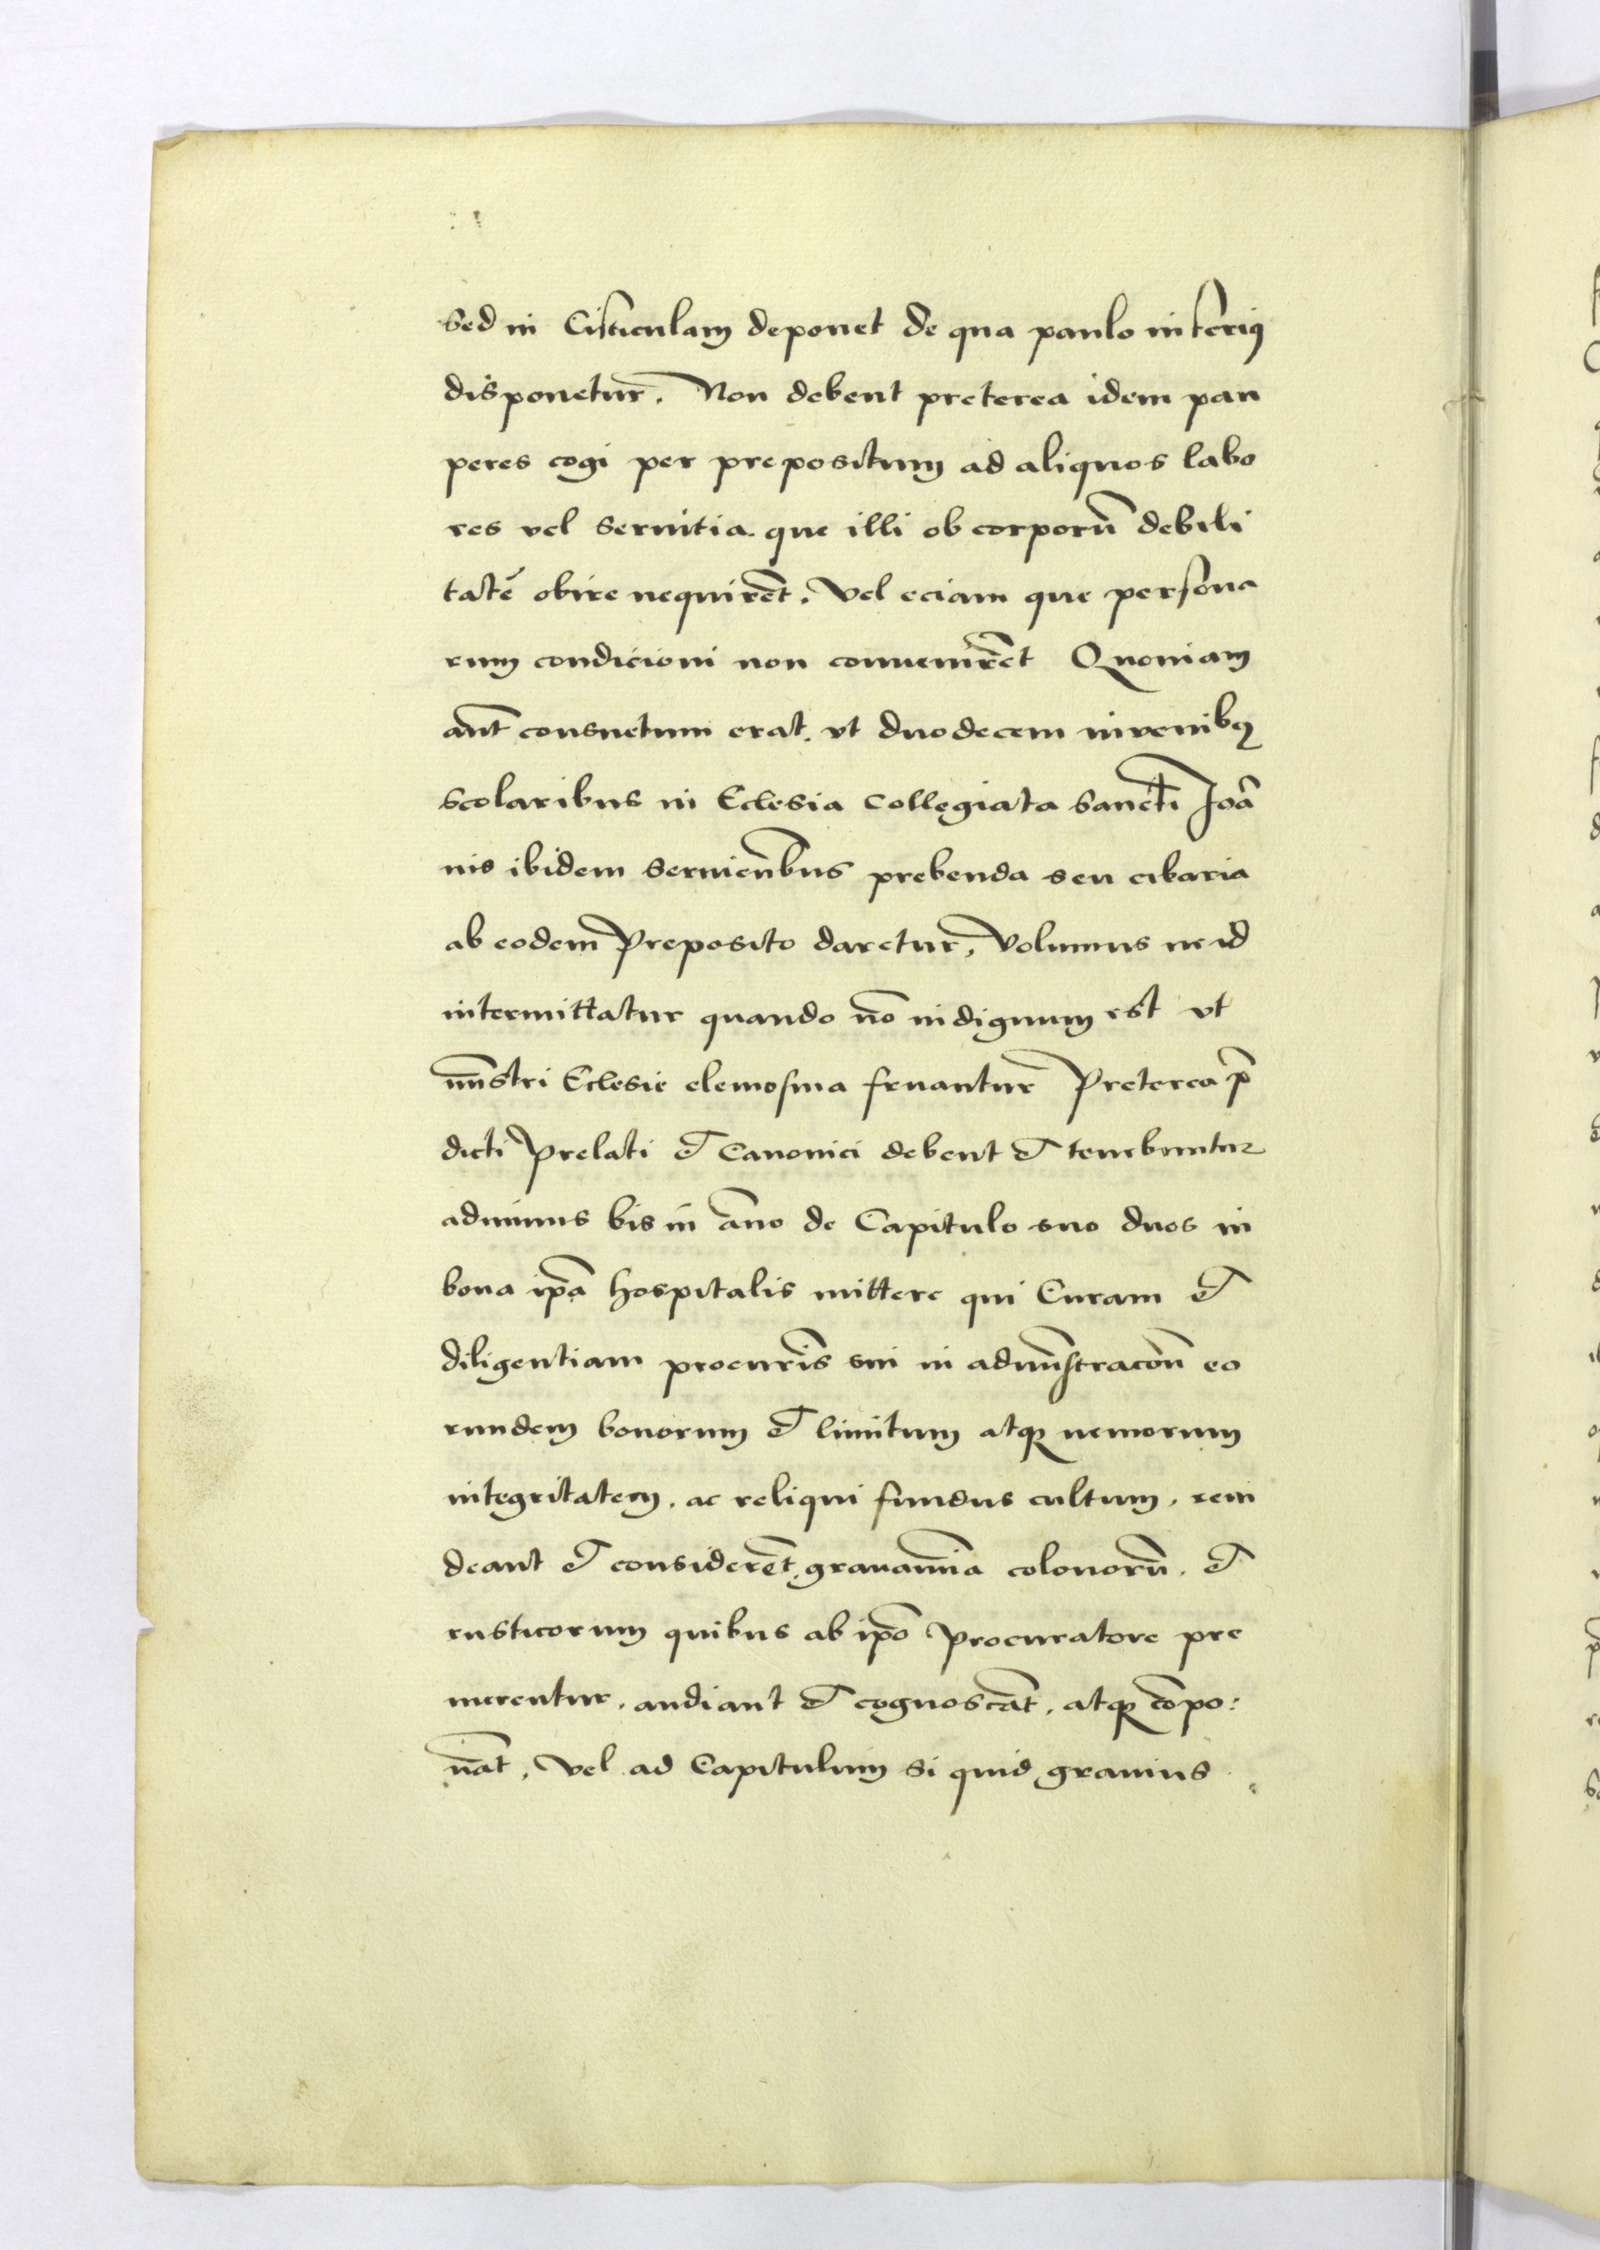 Sed in Cisticulam deponet de qua paulo inferiꝰ
disponetur. Non debent preterea idem pau
peres cogi per prepositum ad aliquos labo
res vel seruitia. que illi ob corporū debili
tatē obire nequirēt. Vel eciam que persona
rum condicioni non conuenirēt Quoniam
aut̄ consuetum erat. vt duodecem iuvenibꝰ
scolaribus in Eclesia Collegiata Sancti Joā
nis ibidem seruientibus prebenda seu cibaria
ab eodem Preposito daretur, Volumus ne id
intermittatur quando nō indignum est vt
mn̄stri Eclesie elemosina fruantur Preterea p̄
dicti Prelati et Canonici debent et tenebuntur
adminus bis in āno de Capitulo suo duos in
bona ip̄a hospitalis mittere qui Curam et
diligentiam procur̄is sui in admn̄stracōn eo
rundem bonorum et limitum atqꝫ nemorum
integritatem. ac reliqui fundus cultum. reui
deant et considerēt. grauamīa colonorū. et
rusticorum quibus ab ip̄o Procuratore pre
merentur. audiant et cognoscāt. atqꝫ cōpo:
nāt. Vel ad Capitulum si quid grauius